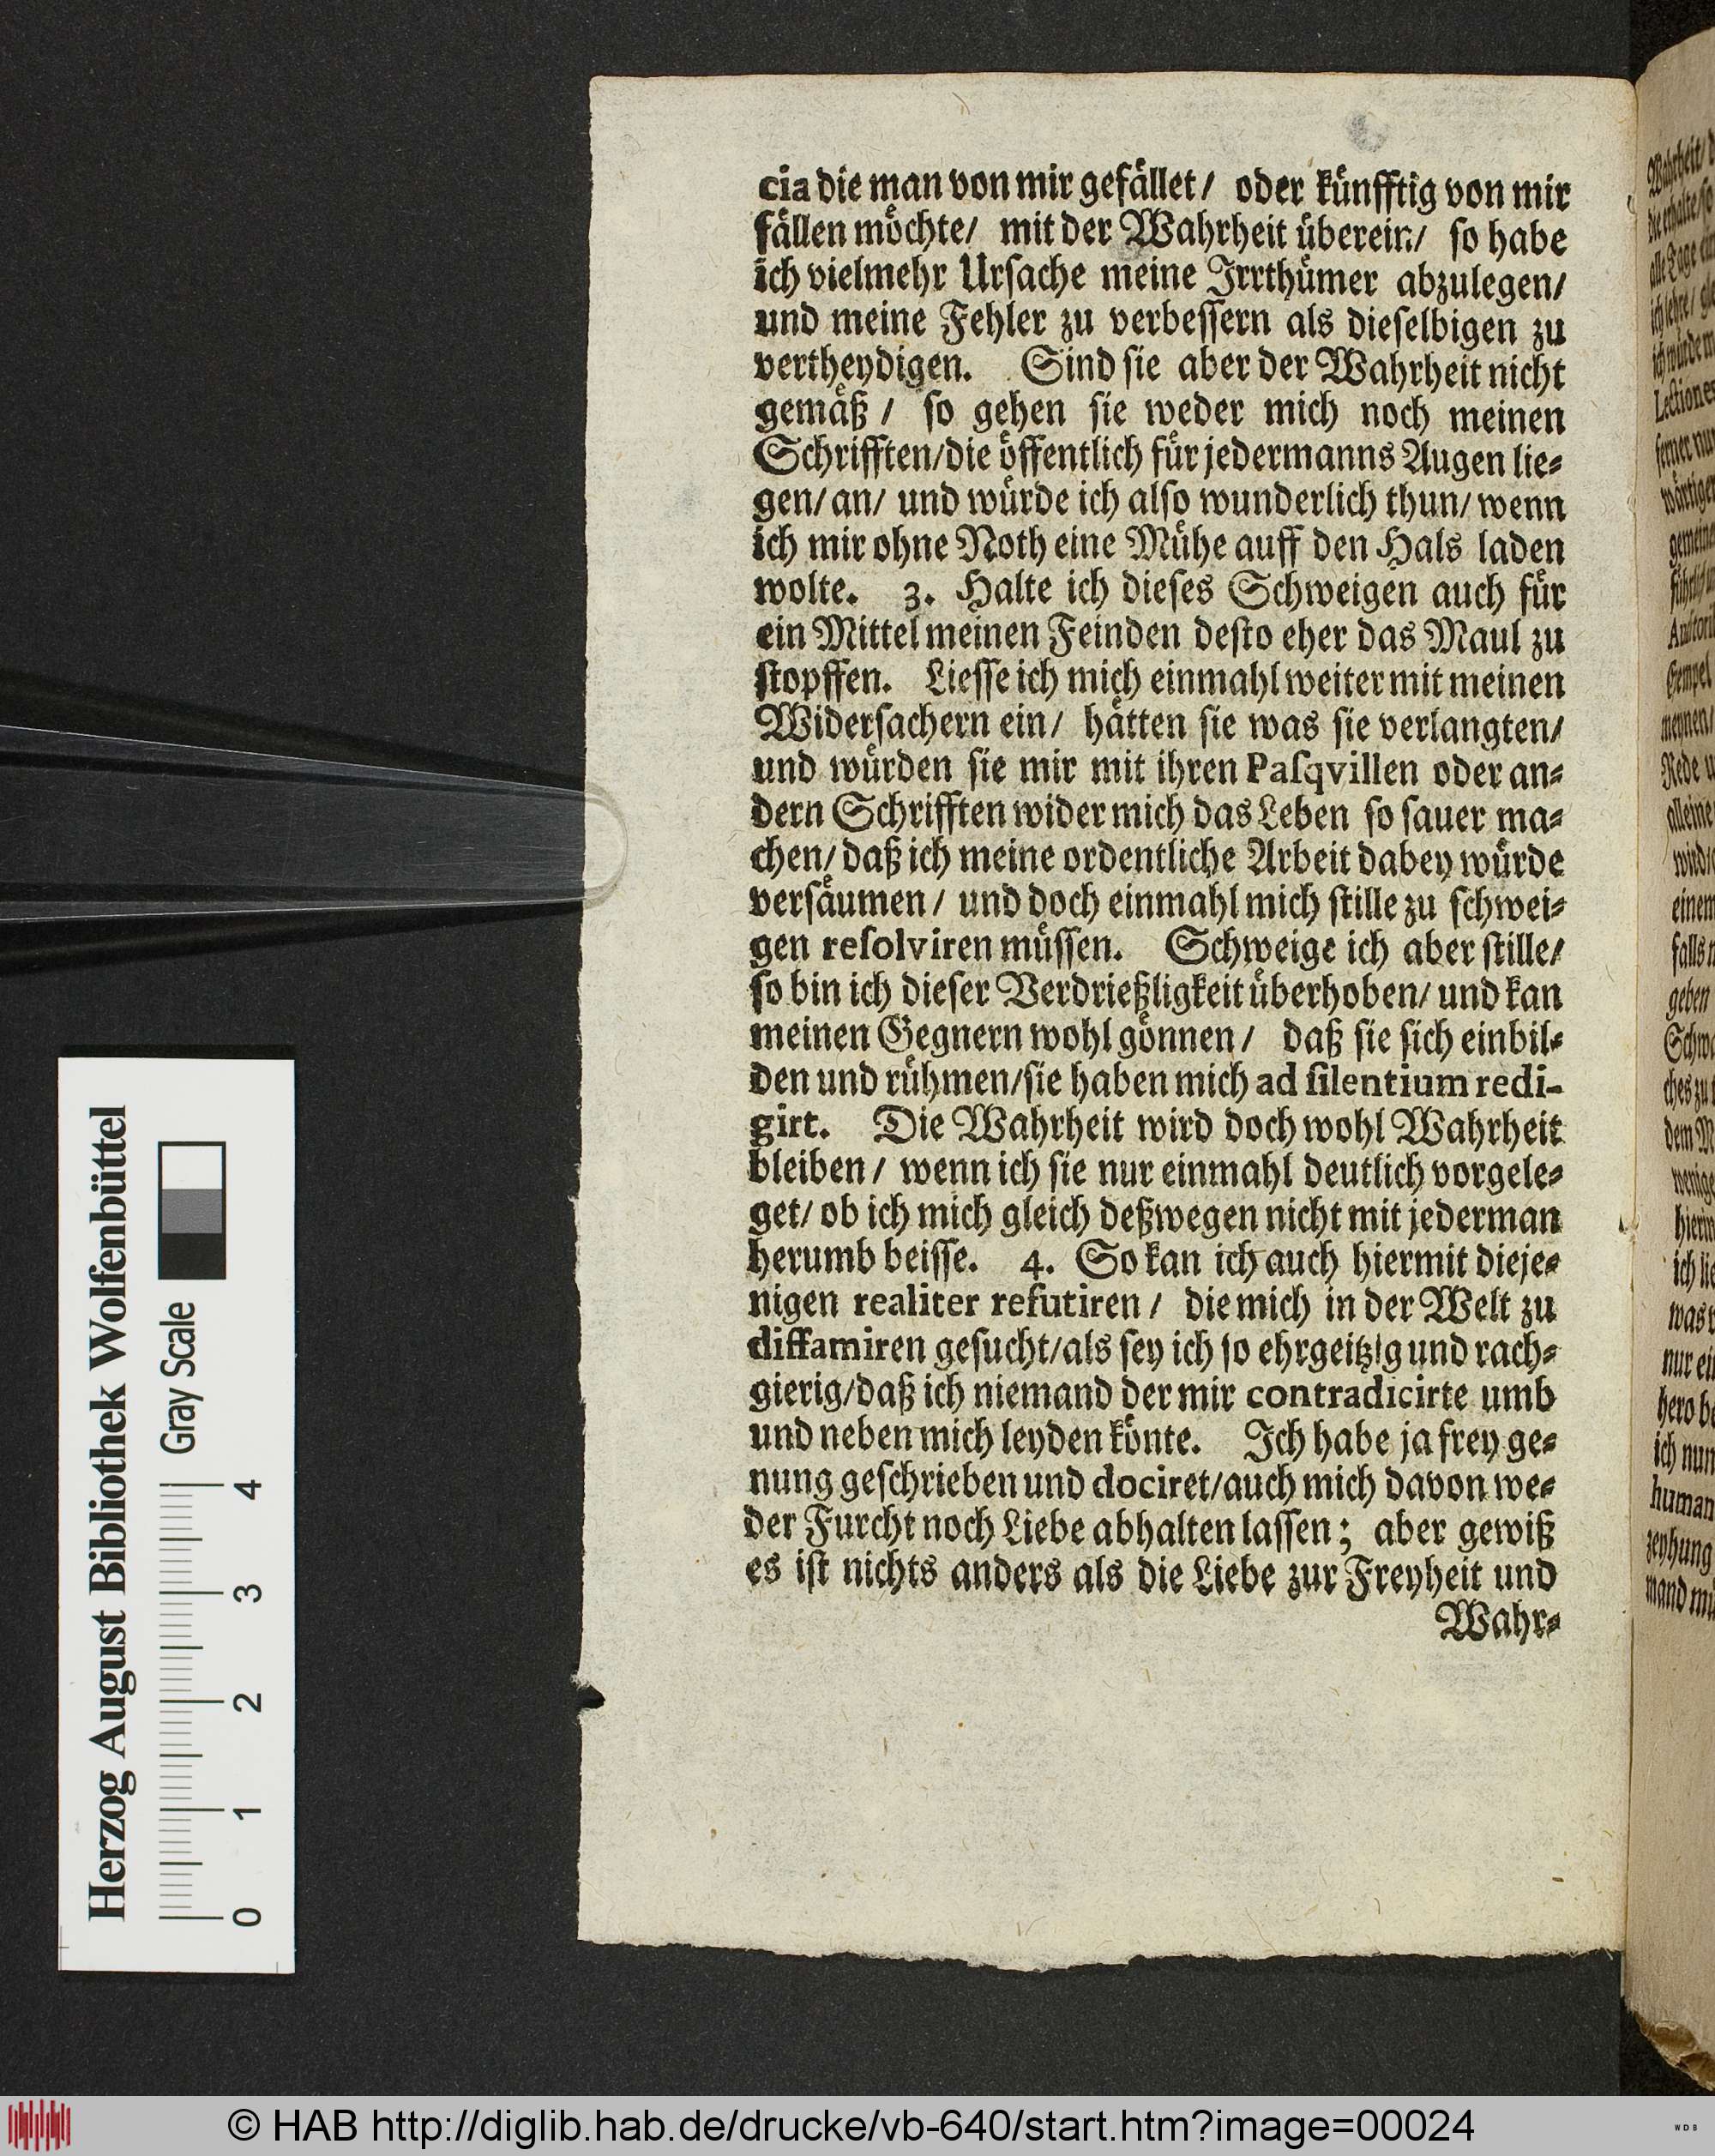 cia die man von mir gefället/ oder künfftig von mir
fällen möchte/ mit der Wahrheit überein/ so habe
ich vielmehr Ursache meine Irrthümer abzulegen/
und meine Fehler zu verbessern als dieselbigen zu
vertheydigen. Sind sie aber der Wahrheit nicht
gemäß / so gehen sie weder mich noch meinen
Schrifften/die öffentlich für jedermanns Augen lie-
gen/ an/ und würde ich also wunderlich thun/ wenn
ich mir ohne Noth eine Mühe auff den Hals laden
wolte. 3. Halte ich dieses Schweigen auch für
ein Mittel meinen Feinden desto eher das Maul zu
stopffen. Liesse ich mich einmahl weiter mit meinen
Widersachern ein/ hätten sie was sie verlangten/
und würden sie mir mit ihren Pasqvillen oder an-
dern Schrifften wider mich das Leben so sauer ma-
chen/ daß ich meine ordentliche Arbeit dabey würde
versäumen / und doch einmahl mich stille zu schwei-
gen resolviren müssen. Schweige ich aber stille/
so bin ich dieser Verdrießligkeit überhoben/ und kan
meinen Gegnern wohl gönnen / daß sie sich einbil-
den und rühmen/sie haben mich ad silentium redi-
girt. Die Wahrheit wird doch wohl Wahrheit
bleiben / wenn ich sie nur einmahl deutlich vorgele-
get/ ob ich mich gleich deßwegen nicht mit jederman
herumb beisse. 4. So kan ich auch hiermit dieje-
nigen realiter refutiren / die mich in der Welt zu
diffamiren gesucht/als sey ich so ehrgeitzig und rach-
gierig/daß ich niemand der mir contradicirte umb
und neben mich leyden könte. Ich habe ja frey ge-
nung geschrieben und dociret/auch mich davon we-
der Furcht noch Liebe abhalten lassen; aber gewiß
es ist nichts anders als die Liebe zur Freyheit und
Wahr-
Herzog August Bibliothek Wolfenbüttel
Gray Scale
0 1 2 3 4
© HAB http://diglib.hab.de/drucke/vb-640/start.htm?image=00024
WDB